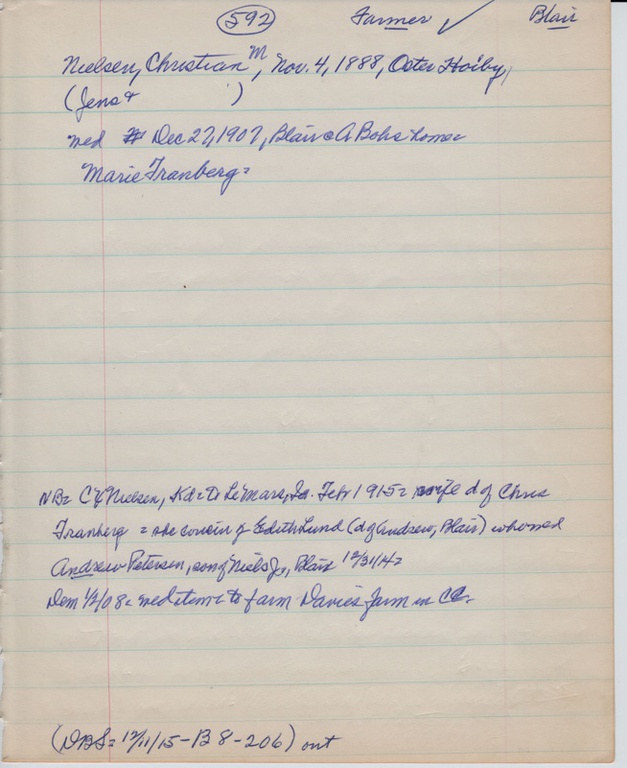 592 Farmer ✓ Blair
Nielsen, Christian M, Nov. 4, 1888, Oster Hoiby,
(Jens + )
wed Dec 27, 1907, Blair @ A Bohs home=
Marie Tranberg=
NB= C Nielsen, to LeMars, Ia. Feb 1915= wife d of Chris
Tranberg = she cousin of Edith Lund (d of Andrew, Blair) who wed
Andrew Petersen, son of Niels Jr, Blair 12/31/14=
Dem 1/2/08= wed item= to farm Davies farm in
(DBS= 12/11/15-B8-206) out